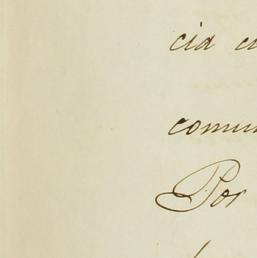 cia
comun
Por